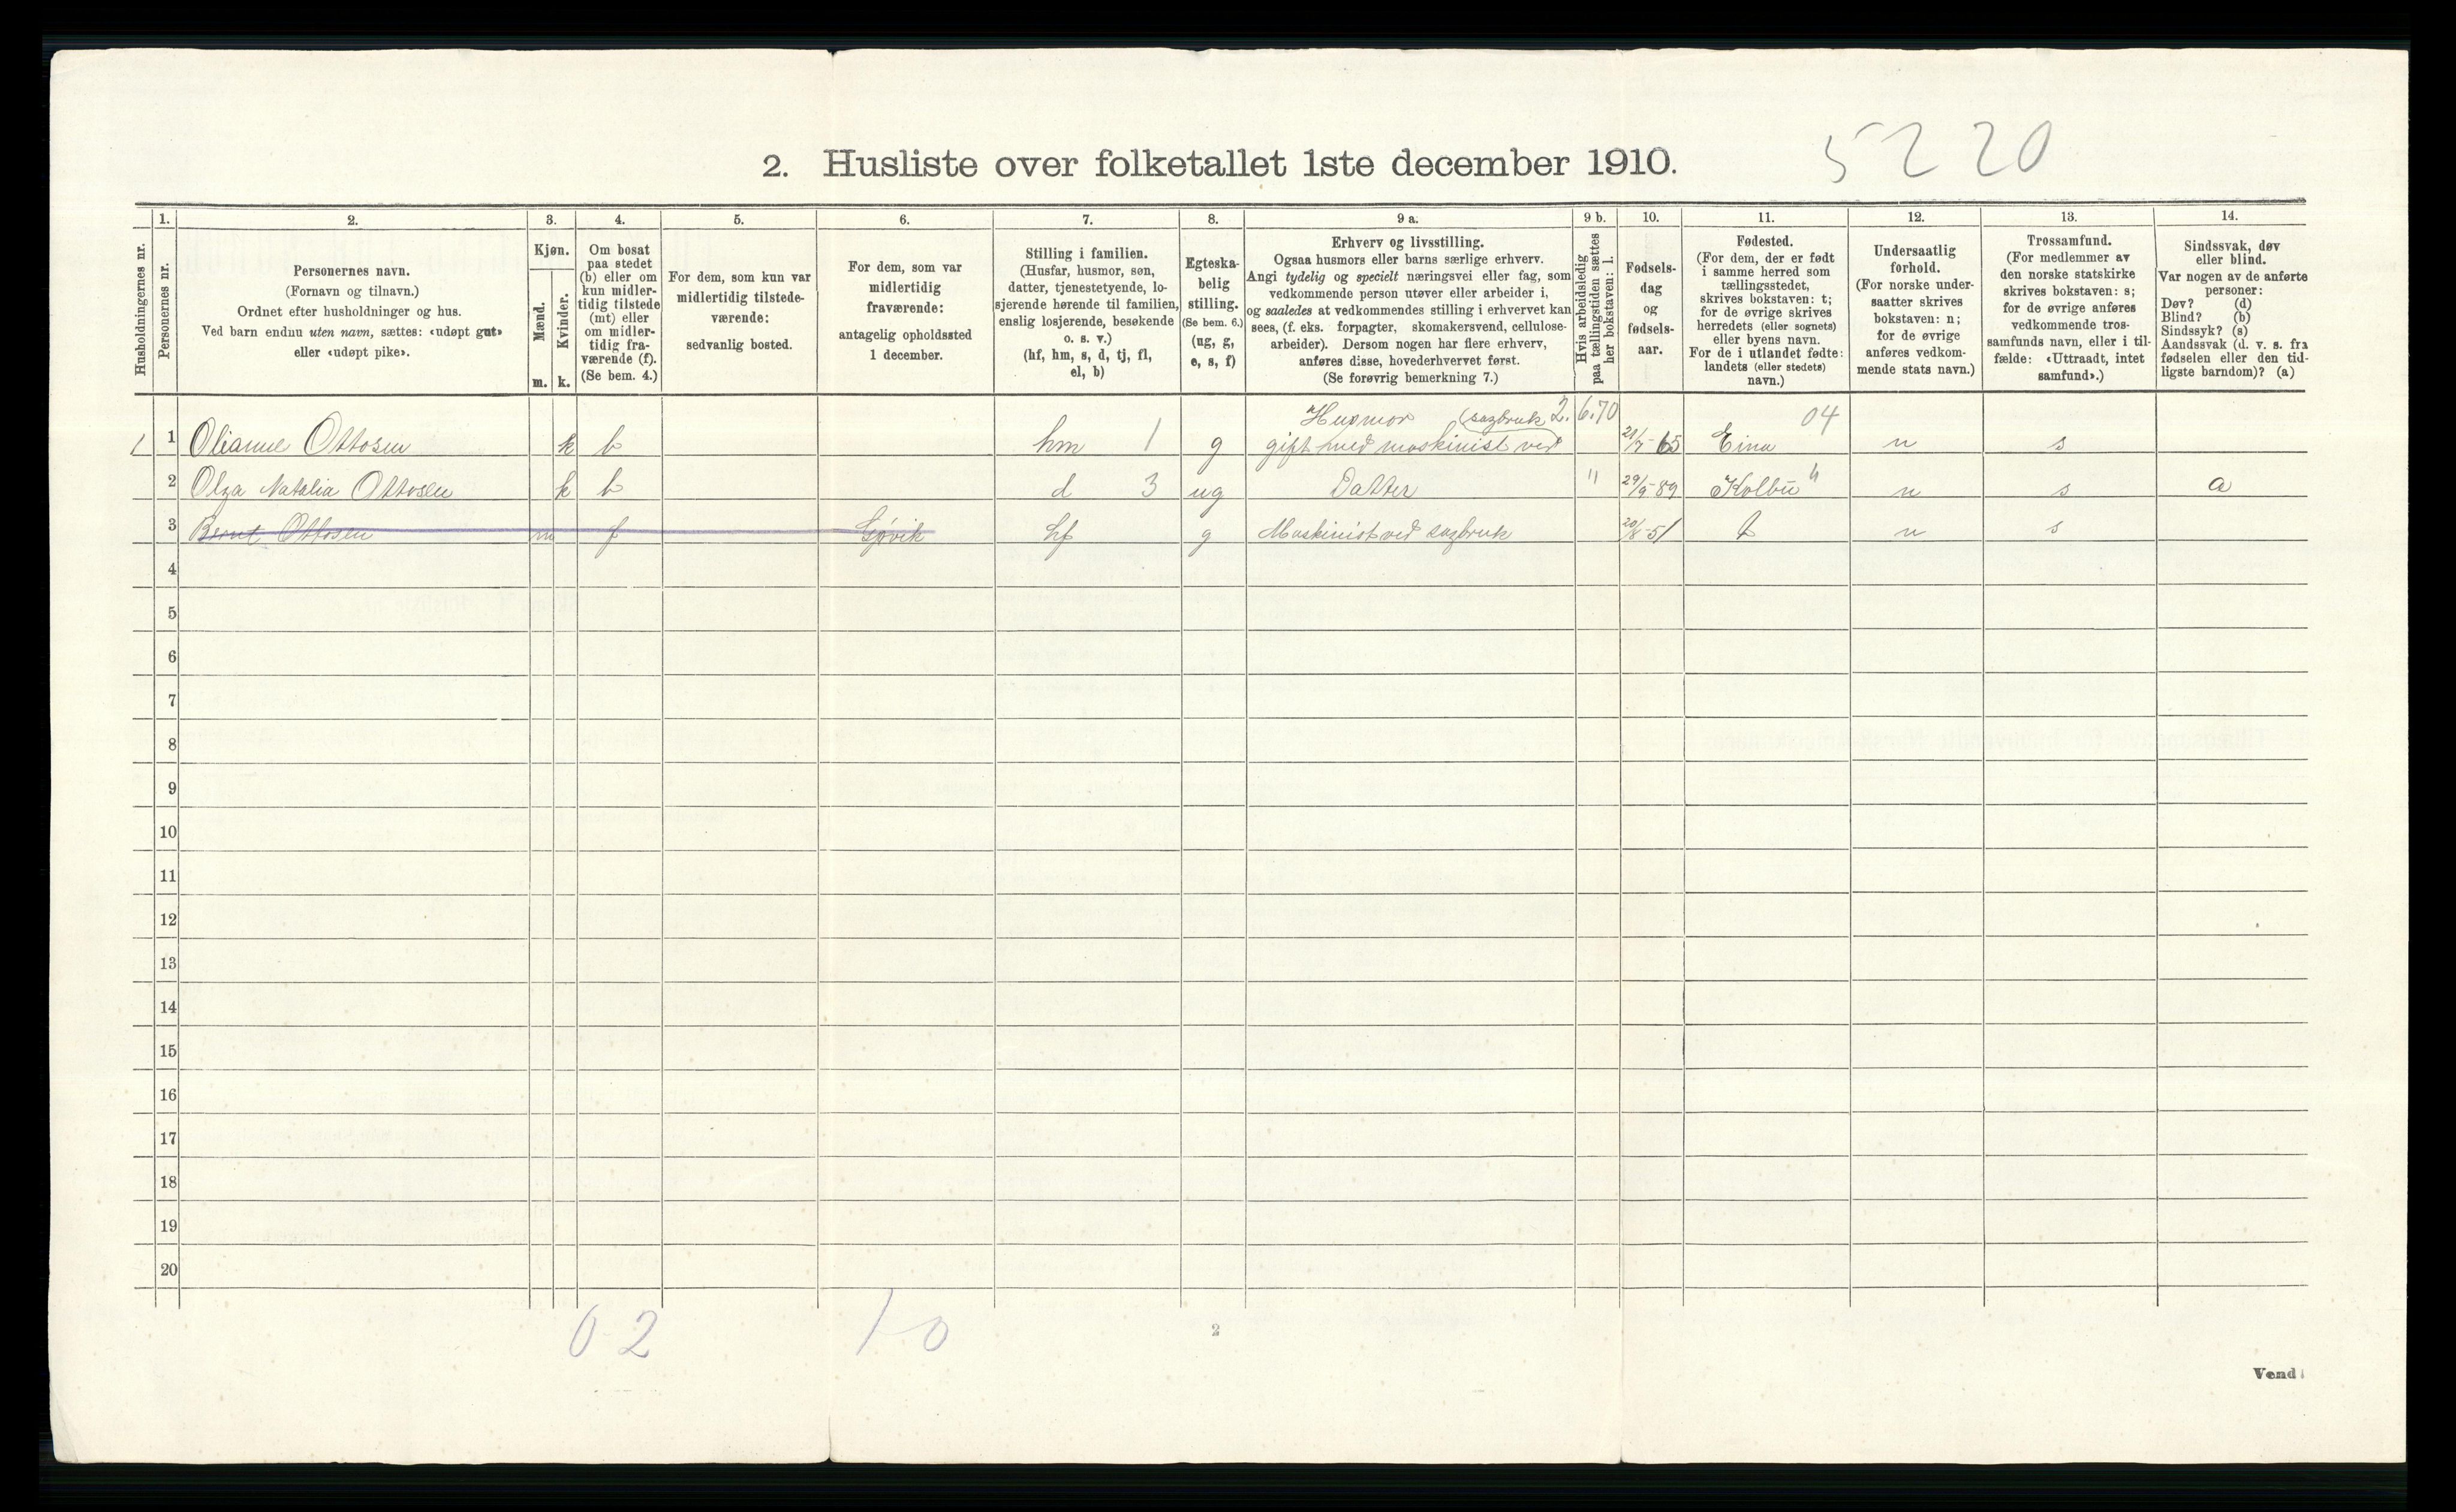 5220
2. Husliste over folketallet 1ste december 1910.
Husholdningernes nr.
1.
Personernes nr.
2.
Personernes navn.
(Fornavn og tilnavn.)
Ordnet efter husholdninger og hus.
Ved barn endnu uten navn, sættes: «udøpt gut»
eller «udøpt pike».
3.
Kjøn.
Mænd.
Kvinder.
m. k.
4.
Om bosat
paa stedet
(b) eller om
kun midler-
tidig tilstede
(mt) eller
om midler-
tidig fra-
værende (f).
(Se bem. 4.)
5.
For dem, som kun var
midlertidig tilstede-
værende:
sedvanlig bosted.
6.
For dem, som var
midlertidig
fraværende:
antagelig opholdssted
1 december.
7.
Stilling i familien.
(Husfar, husmor, søn,
datter, tjenestetyende, lo-
sjerende hørende til familien,
enslig losjerende, besøkende
o. s. v.)
(hf, hm, s, d, tj, fl,
el, b)
8.
Egteska-
belig
stilling.
(Se bem. 6.)
(ug, g,
e, s, f)
9 a.
Erhverv og livsstilling.
Ogsaa husmors eller barns særlige erhverv.
Angi tydelig og specielt næringsvei eller fag, som
vedkommende person utøver eller arbeider i,
og saaledes at vedkommendes stilling i erhvervet kan
sees, (f. eks. forpagter, skomakersvend, cellulose-
arbeider). Dersom nogen har flere erhverv,
anføres disse, hovederhvervet først.
(Se forøvrig bemerkning 7.)
9 b.
Hvis arbeidsledig
paa tællingstiden sættes
her bokstaven: l.
10.
Fødsels-
dag
og
fødsels-
aar.
11.
Fødested.
(For dem, der er født
i samme herred som
tællingsstedet,
skrives bokstaven: t;
for de øvrige skrives
herredets (eller sognets)
eller byens navn.
For de i utlandet fødte:
landets (eller stedets)
navn.)
12.
Undersaatlig
forhold.
(For norske under-
saatter skrives
bokstaven: n;
for de øvrige
anføres vedkom-
mende stats navn.)
13.
Trossamfund.
(For medlemmer av
den norske statskirke
skrives bokstaven: s;
for de øvrige anføres
vedkommende tros-
samfunds navn, eller i til-
fælde: «Uttraadt, intet
samfund».)
14.
Sindssvak, døv
eller blind.
Var nogen av de anførte
personer:
Døv? (d)
Blind? (b)
Sindssyk? (s)
Aandssvak (d. v. s. fra
fødselen eller den tid-
ligste barndom)? (a)
Husmor (sagbruk 2. 6.70 04
1 1 Olianne Ottosen k b hm 1 g gift med maskinist ved 21/7-65 Eina n s
2 Olga Natalia Ottosen k b d 3 ug Datter " 29/9-89 Kolbu n s a
3 Bernt Ottosen m f Gjøvik hf g Maskinist ved sagbruk t n s
4
5
6
7
8
9
10
11
12
13
14
15
16
17
18
19
20
0 2 1 0
2
Vend